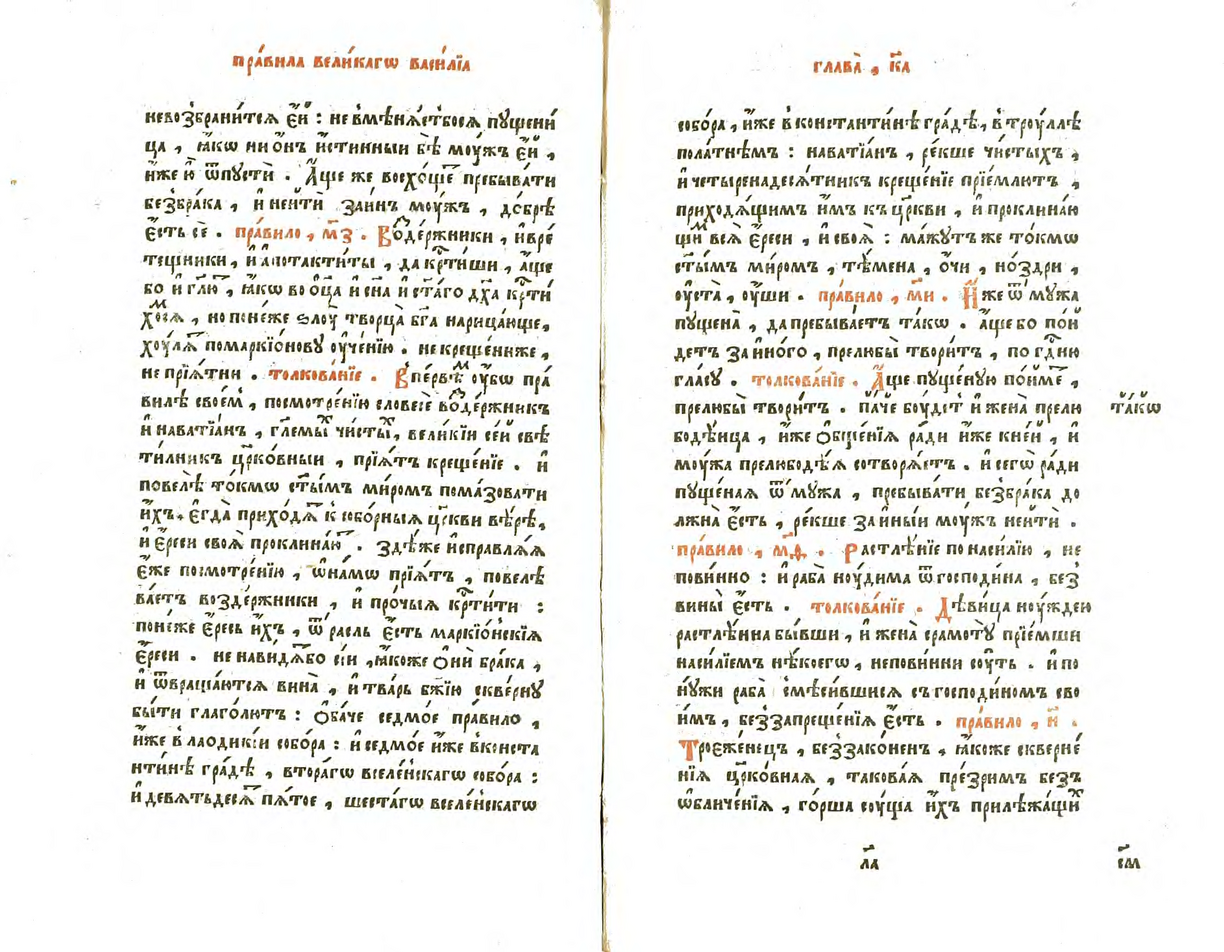 пра́вила вели́кагѡ васи́лїа
невозбрани́тсѧ є҆́й : не вмѣнѧ́етбосѧ пꙋщени́
ца , ꙗ҆́кѡ ни ѻ҆́нъ и҆́стинныи бѣ̀ мо́ужъ є҆́й ,
и҆́же ю҆̀ ѿпꙋстѝ . А҆́ще же восхо́щеⷮ пребыва́ти
без̾бра́ка , и҆ неи҆тѝ за и҆́нъ мо́ужъ , до́брѣ
є҆́сть сѐ . пра́вило , м҃з . Воⷥде́ржники , и҆ вре́
тещники , и҆ а҆потакти́ты , да крⷭ҇ти́ши , а҆́ще
бо и҆ гл҃ю , ꙗ҆́кѡ во ѻ҆ц҃а и҆ сн҃а и҆ ст҃а́го дх҃а крⷭ҇ти́
хоⷨсѧ , но поне́же ѕлоу̀ творца̀ бг҃а нарица́юще ,
хо́улѧⷮ помаркїо́новꙋ оу҆че́нїю . не креще́ниже ,
не прїѧ́тни . толкова́нїе . Впе́рвѣⷨ оу҆́бѡ пра́
вилѣ свое́мⸯ , посмотре́нїю словесѐ воⷥде́ржникъ
и҆ навати́анъ , гл҃емыⷯ чи́стыⷯ , вели́кїи се́й свѣ
ти́лникъ цр҃ко́вныи , прїѧ́тъ креще́нїе . и҆
повелѣ̀ то́кмѡ ст҃ы́мъ ми́ромъ пома́зовати
и҆́хъ , є҆гда̀ прихо́дѧⷮ к собо́рныѧ цр҃кви вѣ́рѣ ,
и҆ є҆́реси своѧ̀ проклина́юⷮ . здѣ́же и҆справлѧ́ѧ
є҆́же посмотре́нїю , ѡ҆на́мѡ прїѧ́тъ , повелѣ
ва́етъ возде́ржники , и҆ про́чыѧ крⷭ҇ти́ти :
поне́же є҆́ресь и҆́хъ , ѿ́расль є҆́сть маркїо́нскїѧ
є҆́реси . не нави́дѧⷮбо сїи , ꙗ҆́коже ѻ҆нѝ бра́ка ,
и҆ ѿвраща́ютсѧ вина̀ , и҆ тва́рь бж҃їю скве́рнꙋ
бы́ти глаго́лютъ : Ѻ҆ба́че седмо́е пра́вило ,
и҆́же в лаодикі́и собо́ра : и҆ седмо́е и҆́же вконста
нти́нѣ гра́дѣ , вто́рагѡ вселе́нскагѡ собо́ра :
и҆ девѧ́тьдесѧⷮ пѧ́тое , шеста́гѡ вселе́нскагѡ
глава̀ , к҃а
собо́ра , и҆́же в константи́нѣ гра́дѣ , в троу́ллѣ
пола́тнѣмъ : навати́анъ , ре́кше чи́стыхъ ,
и҆ четыренадесѧ́тникъ креще́нїе прїе́млютъ ,
приходѧ́щимъ и҆̀мъ къ цр҃кви , и҆ проклина́ю
щиⷨ всѧ̀ є҆́реси , и҆ своѧ̀ : ма́жꙋтъ же то́кмѡ
ст҃ымъ ми́ромъ , тѣ́мена , ѻ҆́чи , но́здри ,
оу҆ста̀ , оу҆́ши . пра́вило , м҃и . И҆́же ѿ мꙋ́жа
пꙋщена̀ , да пребыва́етъ та́кѡ . а҆́ще бо пои́
детъ за и҆но́го , прелюбы̀ твори́тъ , по гдⷭ҇ню
гла́сꙋ . толкова́нїе . А҆́ще пꙋще́нꙋю по́ймеⷮ ,
прелюбы̀ твори́тъ . па́че бо́удетⸯ и҆ жена̀ прелю та́кѡ
бодѣ́ица , и҆́же ѻ҆бще́нїѧ ра́ди и҆́же к не́й , и҆
моу́жа прелюбодѣ́ѧ сотворѧ́етъ . и҆ сегѡ̀ ра́ди
пꙋще́наѧ ѿ мꙋ́жа , пребыва́ти без̾бра́ка до
лжна̀ є҆́сть , ре́кше за и҆́ныи мо́ужъ неи҆тѝ .
пра́вило , м҃ѳ . Растлѣ́нїе по наси́лїю , не
пови́нно : и҆ раба̀ ноу́дима ѿ господи́на , без̾
вины̀ є҆́сть . толкова́нїе . Дѣви́ца но́уждею
растлѣ́нна бы́вши , и҆ жена̀ срамотꙋ̀ прїе́мши
наси́лїемъ нѣ́коегѡ , непови́нни со́уть . и҆ по
нꙋ́жи раба̀ смѣси́вшисѧ съ господи́номъ сво
и́мъ , без̾запреще́нїѧ є҆́сть . пра́вило , н҃ .
Трое҆же́нецъ , без̾зако́ненъ , ꙗ҆́коже скверне́
нїѧ цр҃ко́внаѧ , такова́ѧ пре́зримъ безъ
ѡ҆бличе́нїѧ , го́рша со́уща и҆́хъ прилѣжа́щиⷯ
л҃а
с҃м